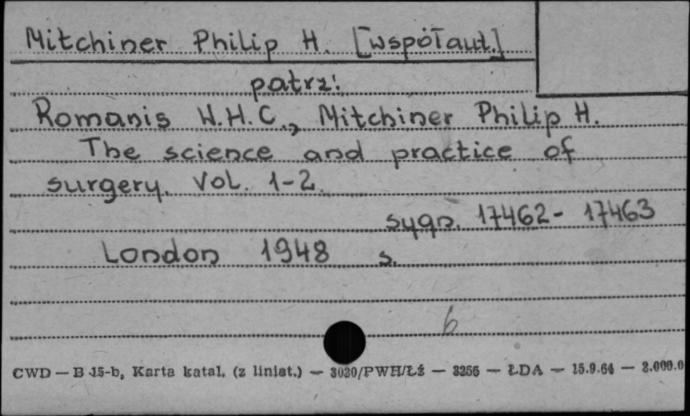 Mitchiner Philip H. [współaut.]
patrz:
Romanis W.H.C., Mitchiner Philip H.
The science and practice of
surgery. Vol. 1-2.
sygn. 17462- 17463
London 1948 s.
6
CWD — B 15-b, Karta katal. (z liniat.) — 3020/PWH/Łź — 3256 — ŁDA — 15.9.64 — 2.000.0